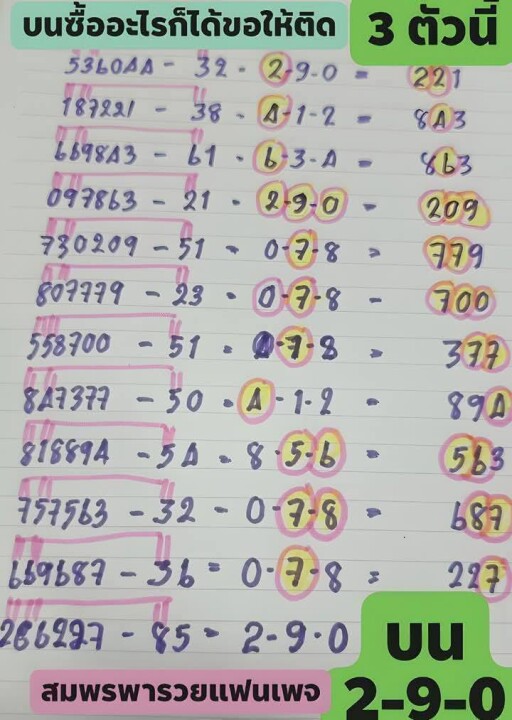 บนซื้ออะไรก็ได้ขอให้ติด 3 ตัวนี้
536044 - 32 - 2-9-0 = 221
187221 - 38 - 4-1-2 = 843
669843 - 61 - 6-3-4 = 863
097863 - 21 - 2-9-0 - 209
730209 - 51 - 0-7-8 = 779
807779 - 23 - 0-7-8 - 700
558700 - 51 - 0-7-8 = 377
847377 - 50 - 4-1-2 - 894
818894 - 54 - 8-5-6 = 563
757563 - 32 - 0-7-8 = 687
669687 - 36 = 0-7-8 = 227
266227 - 85 - 2-9-0
บน
สมพรพารวยแฟนเพจ
2-9-0